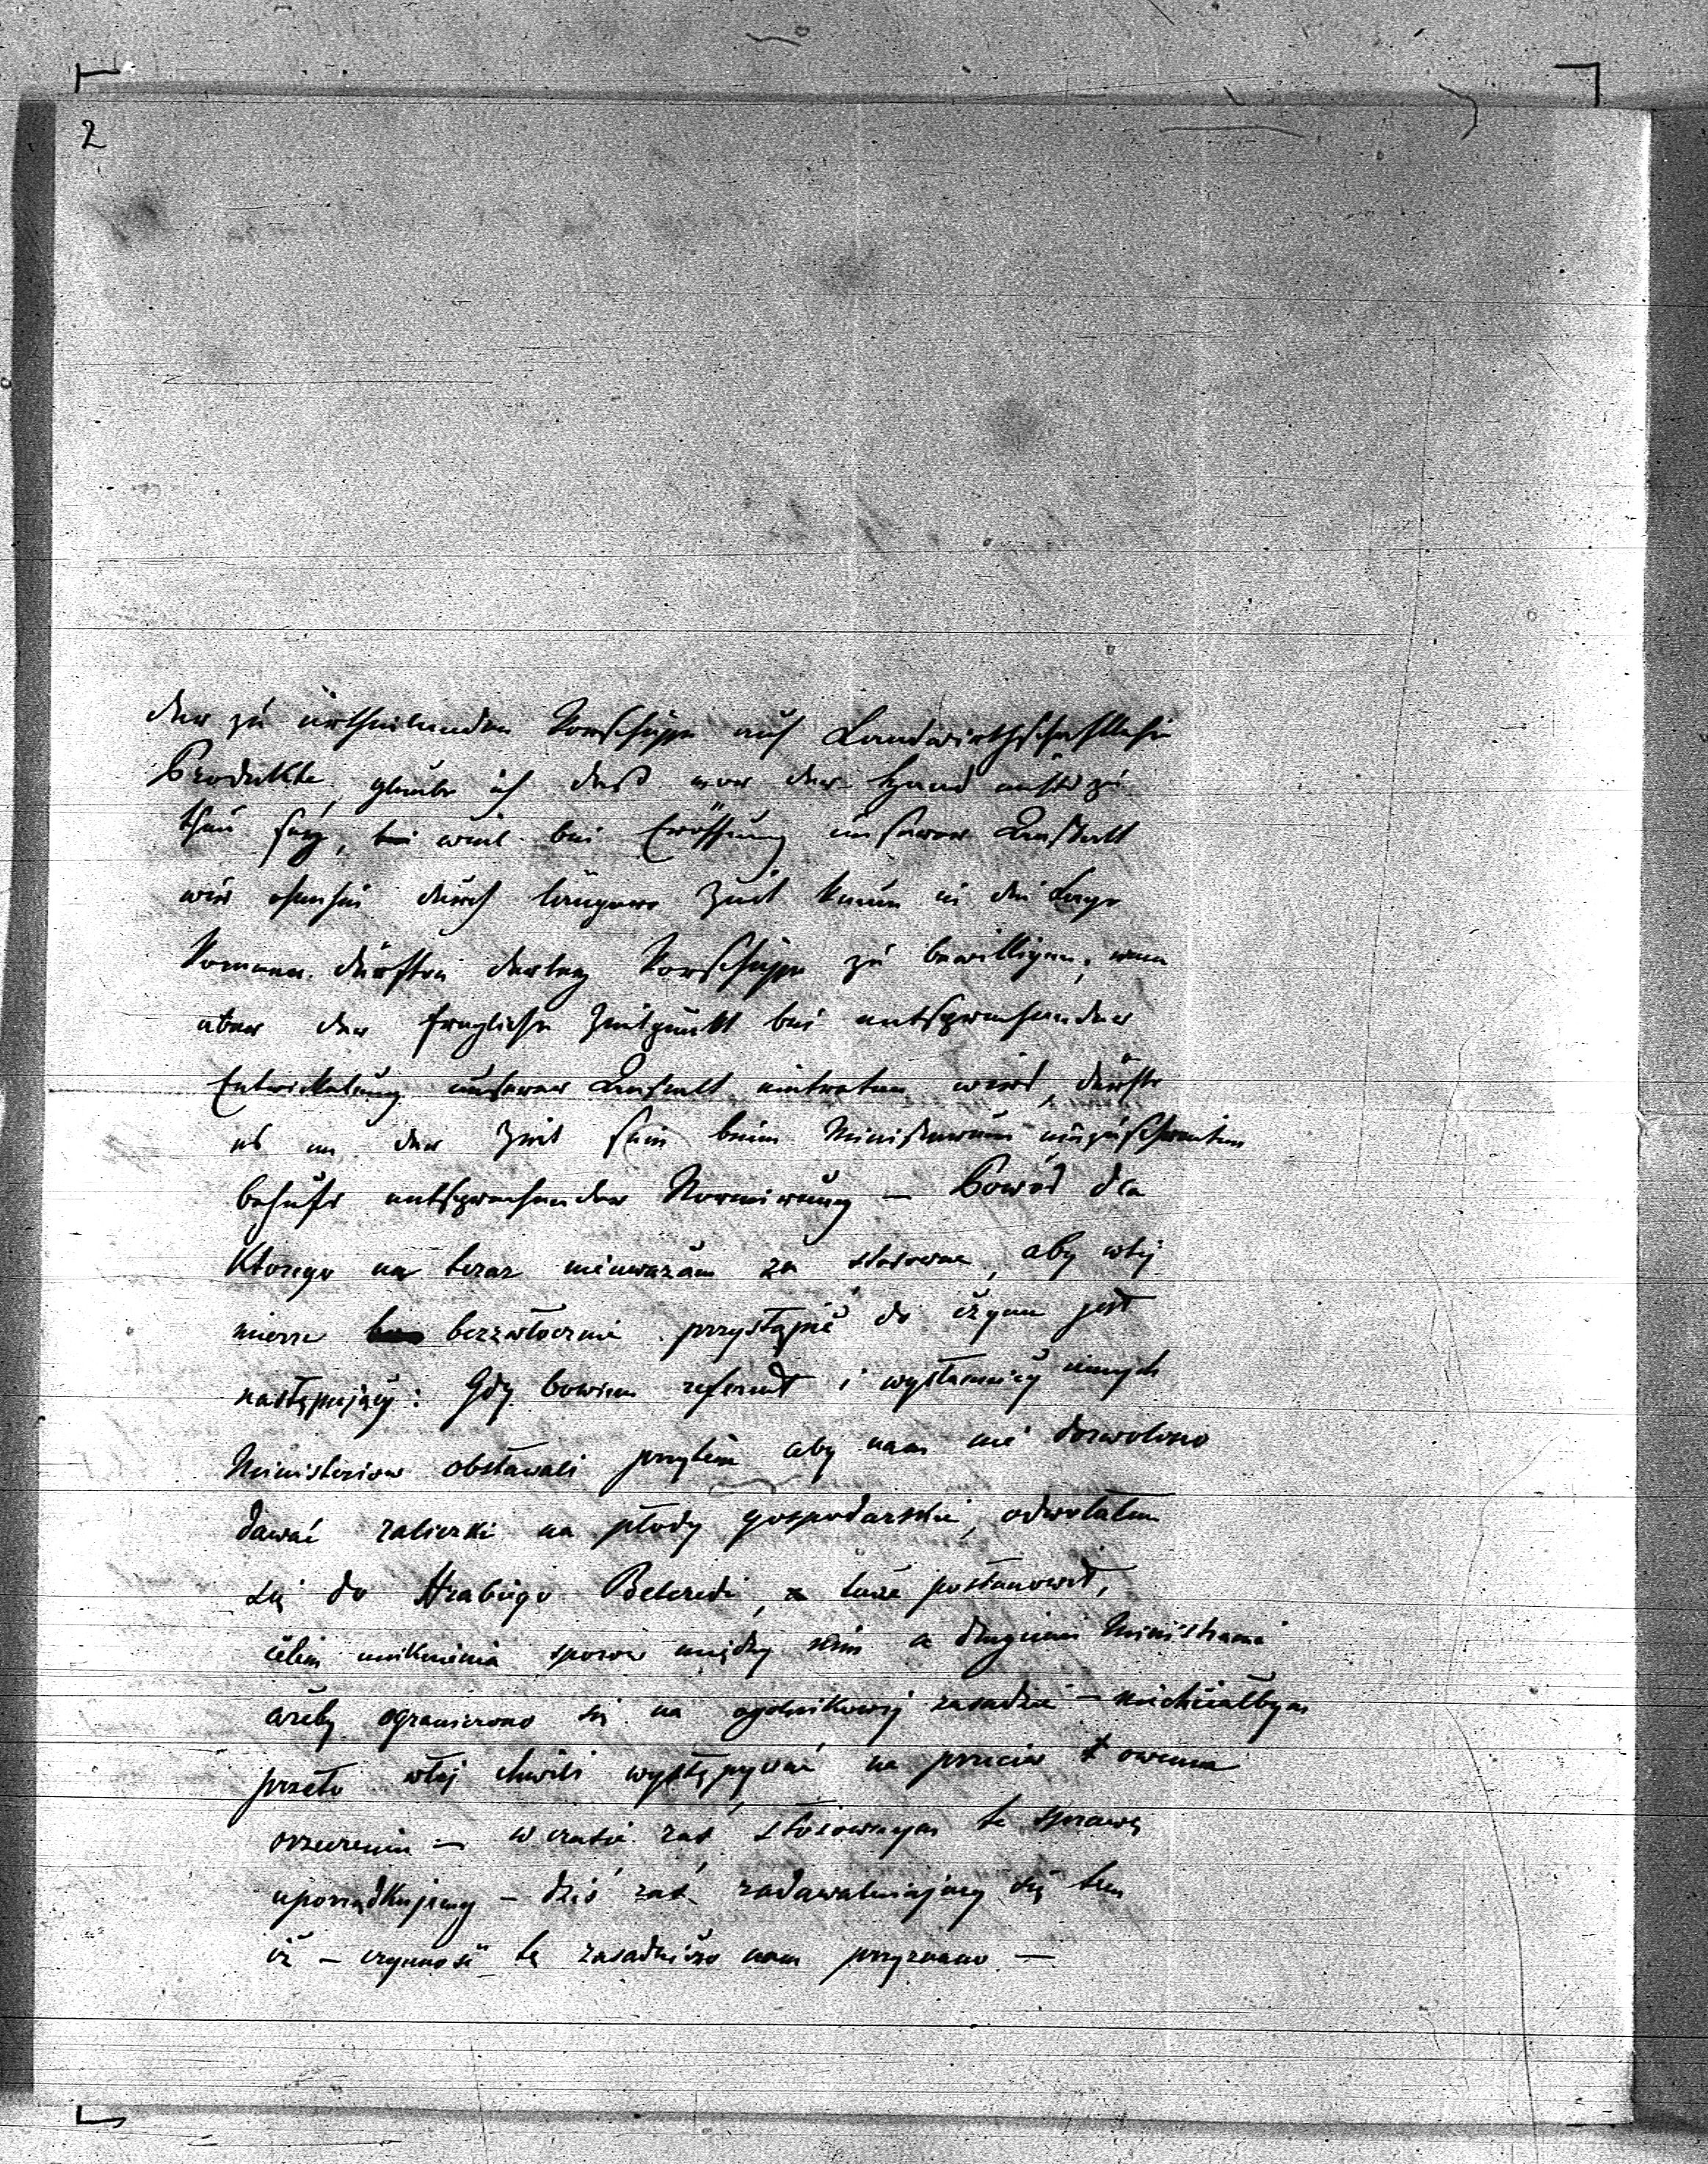 2
der zu ertheilenden Vorschüsse auf Landwirthschaftliche
Produkte, glaube ich daß vor der Hand nichts zu
thun sey, weil bei Eröffnung unserer Anstalt
wir ohnehin durch längere Zeit kaum in die Lage
kommen dürften derley Vorschüsse zu bewilligen, wenn
aber der fragliche Zeitpunkt bei entsprechender
Entwickelung unserer Anstalt eintreten wird, dürfte
es an der Zeit sein beim Ministerium einzuschreiten
behufs entsprechender Normirung – Powód dla
Ktorego na teraz nieuważam za stosowne, aby wtej
mierze bezzwłocznie przystąpić do czynu jest
następujący: Gdy bowiem referent i wysłannicy innych
Ministeriow obstawali przytem aby nam nie dozwolono
dawać zaliczki na płody gospodarskie, odwołałem
się do Hrabiego Belcredi, a tenże postanowił,
celem uniknienia sporow między nim a drugiemi Ministrami
ażeby ograniczono się na ogolnikowej zasadzie – niechciałbym
przeto wtej chwili występywać na przeciw owemu
orzeczeniu – w czasie zaś stosownym tę sprawę
uporządkujemy – dziś zaś zadawalniajmy się tem
iż – czynność tę zasadniczo nam przyznano –